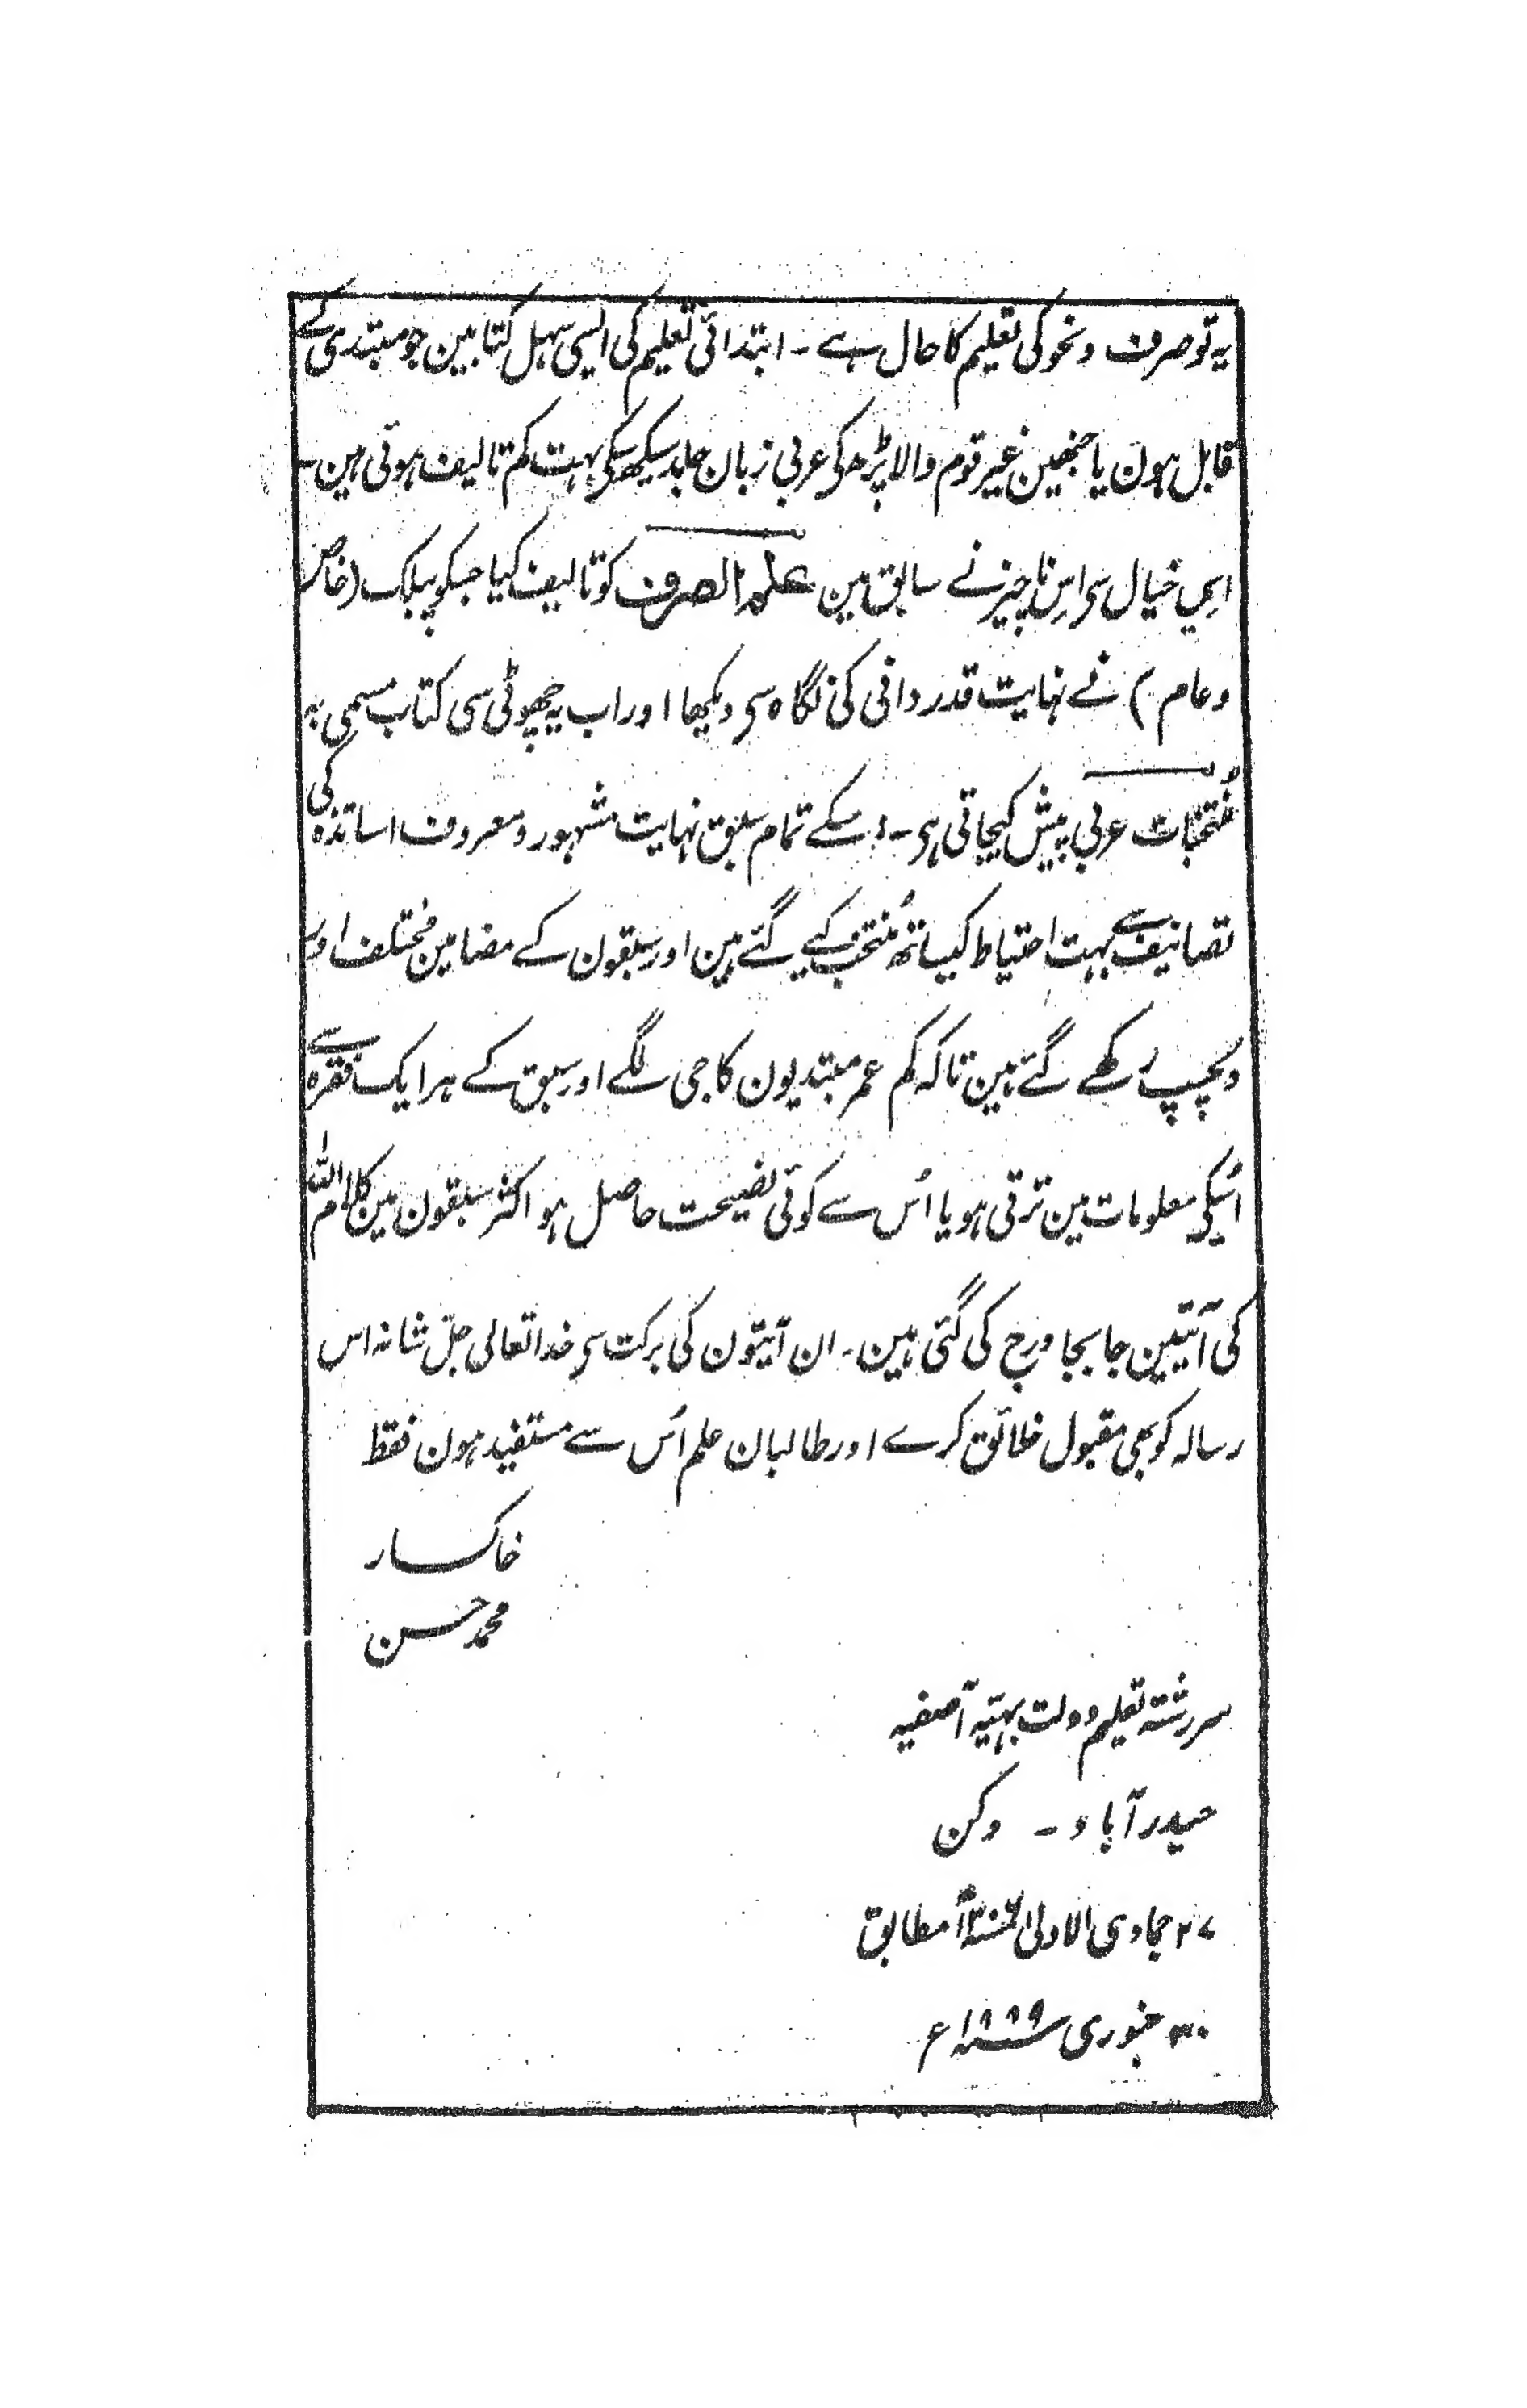 یہ تو صرف و نحو کی تعلیم کا حال ہے ۔ ابتدائی تعلیم کی ایسی سہل کتابین جو مبتدی کے
قابل ہون یا جنھین غیر قوم والا پڑھ کی عربی زبان جلد سیکھ سکی بہت کم تالیف ہوتی ہین ۔
اسی خیال سی اس ناچیز نے سابق مین علم الصرف کو تالیف کیا جسکو پبلک (خاص
و عام) نے نہایت قدردانی کی نگاہ سی دیکھا اور اب یہ چھوٹی سی کتاب مسمی بہ
مُنتخبات عربی پیش کیجاتی ہی ۔ اسکے تمام سبق نہایت مشہور و معروف اساتذہ کی
تصانیف سے بہت احتیاط کیساتھ مُنتخب کیے گئے ہین اور سبقون کے مضامین مختلف اور
دلچسپ رکھے گئے ہین تاکہ کم عمر مبتدیون کا جی لگے اور سبق کے ہر ایک فقرہ سے
اُنکی معلومات مین ترقی ہو یا اُس سے کوئی نصیحت حاصل ہو اکثر سبقون مین کلام اللہ
کی آیتین جابجا درج کی گئی ہین ۔ ان آیتون کی برکت سی خدا تعالی جلّ شانہ اس
رسالہ کو بھی مقبول خلائق کرے اور طالبان علم اُس سے مستفید ہون فقط
خاکسار
محمد حسن
سررشتہ تعلیم دولت بہیّہ آصفیہ
حیدرآباد ۔ دکن
۲۷ جمادی الاولیٰ مطابق
۳۰ جنوری ۱۸۸۹ ع